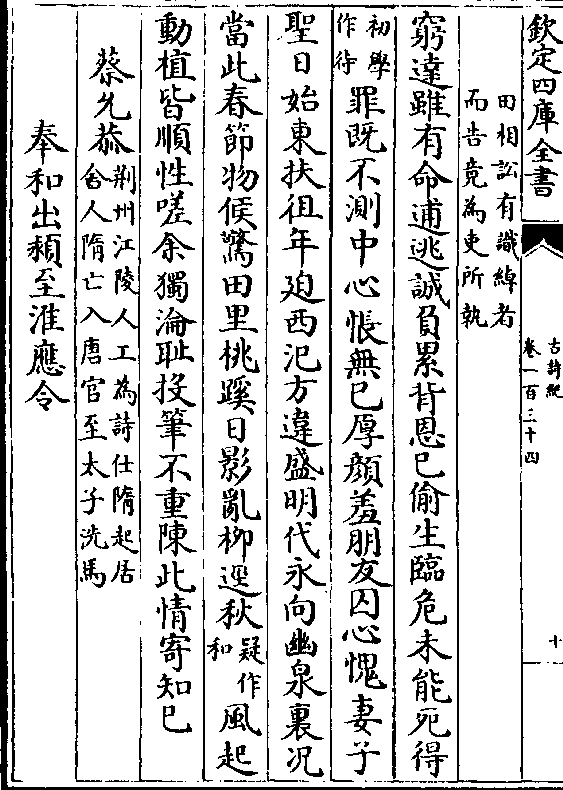 欽定四庫全書
古詩紀
卷一百三十四
十
田相訟有識綽者
而告竟為吏所執
窮達雖有命逋逃誠負累背恩已偷生臨危未能死得
初學
作待
罪既不測中心悵無已厚顔羞朋友囚心愧妻子
聖日始東扶徂年廹西汜方違盛明代永向幽泉裏况
當此春節物候驚田里桃蹊日影亂栁逕秋
疑作
和
風起
動植皆順性嗟余獨淪耻投筆不重陳此情寄知已
蔡允恭
荆州江陵人工為詩仕隋起居
舍人隋亡入唐官至太子洗馬
奉和出頴至淮應令